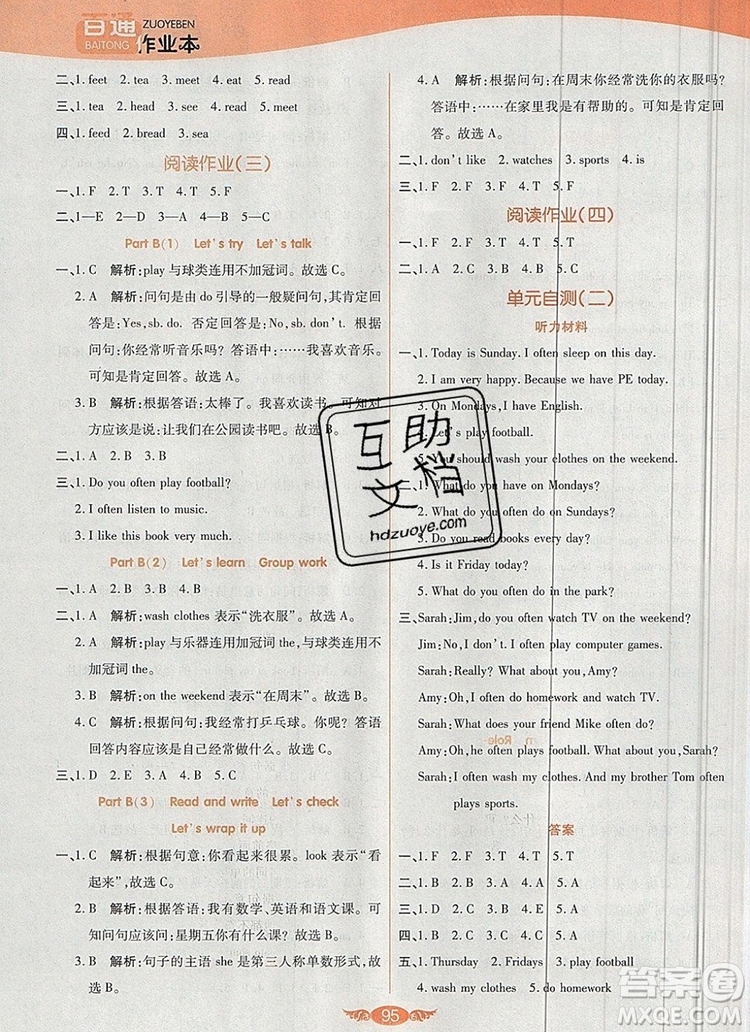 百通
BAITONG
ZUOYEBEN
作业本
二、1. feet 2. tea 3. meet 4. eat 5. read
三、1. tea 2. head 3. see 4. read 5. meet
四、1. feed 2. bread 3. sea
阅读作业(三)
一、1. F 2. T 3. T 4. T 5. F
二、1—E 2—D 3—A 4—B 5—C
Part B(1) Let's try Let's talk
一、1. C 解析:play 与球类连用不加冠词。故选 C。
2. A 解析:问句是由 do 引导的一般疑问句,其肯定回
答是:Yes,sb. do. 否定回答是:No,sb. don't. 根据
问句:你经常听音乐吗? 答语中:……我喜欢音乐。
可知是肯定回答。故选 A。
3. B 解析:根据答语:太棒了。我喜欢读书。可知对
方应该是说:让我们在公园读书吧。故选 B。
二、1. A 2. B 3. B
三、1. Do you often play football?
2. I often listen to music.
3. I like this book very much.
Part B(2) Let's learn Group work
一、1. A 2. B 3. A 4. B
二、1. A 解析:wash clothes 表示“洗衣服”。故选 A。
2. A 解析:play 与乐器连用加冠词 the,与球类连用不
加冠词 the。故选 A。
3. B 解析:on the weekend 表示“在周末”。故选 B。
4. B 解析:根据问句:我经常打乒乓球。你呢? 答语
回答内容应该是自己经常做什么。故选 B。
三、1. D 2. E 3. A 4. B 5. C
Part B(3) Read and write Let's check
Let's wrap it up
一、1. C 解析:根据句意:你看起来很累。look 表示“看
起来”,故选 C。
2. B 解析:根据答语:我有数学、英语和语文课。可
知问句应该问:星期五你有什么课? 故选 B。
3. B 解析:句子的主语 she 是第三人称单数形式,故
选 B。
4. A 解析:根据问句:在周末你经常洗你的衣服吗?
答语中:……在家里我是有帮助的。可知是肯定回
答。故选 A。
二、1. don't like 2. watches 3. sports 4. is
三、1. F 2. F 3. T 4. F 5. T
阅读作业(四)
一、1. F 2. T 3. F 4. T
单元自测(二)
听力材料
一、1. Today is Sunday. I often sleep on this day.
2. I am very happy. Because we have PE today.
3. On Mondays,I have English.
4. Let's play football.
5. You should wash your clothes on the weekend.
二、1. What do you have on Mondays?
2. What do you often do on Sundays?
3. Do you often read books every day?
4. Is it Friday today?
5. What do you often do in the park?
三、Sarah:Jim,do you often watch TV on the weekend?
Jim:No,I don't. I often play computer games.
Sarah:Really? What about you,Amy?
Amy:Oh,I often do homework and watch TV.
Sarah:What does your friend Mike often do?
Amy:Oh,he often plays football. What about you,Sarah?
Sarah:I often wash my clothes. And my brother Tom often
plays sports.
答案
一、1. F 2. F 3. T 4. T 5. T
二、1. B 2. A 3. A 4. A 5. B
三、1. D 2. C 3. A 4. B 5. E
四、1. B 2. B 3. A 4. B 5. A
五、1. Thursday 2. Fridays 3. football
4. wash my clothes 5. do homework
95
互助
文档
hdzuoye.com
答案圈
MXQE.COM